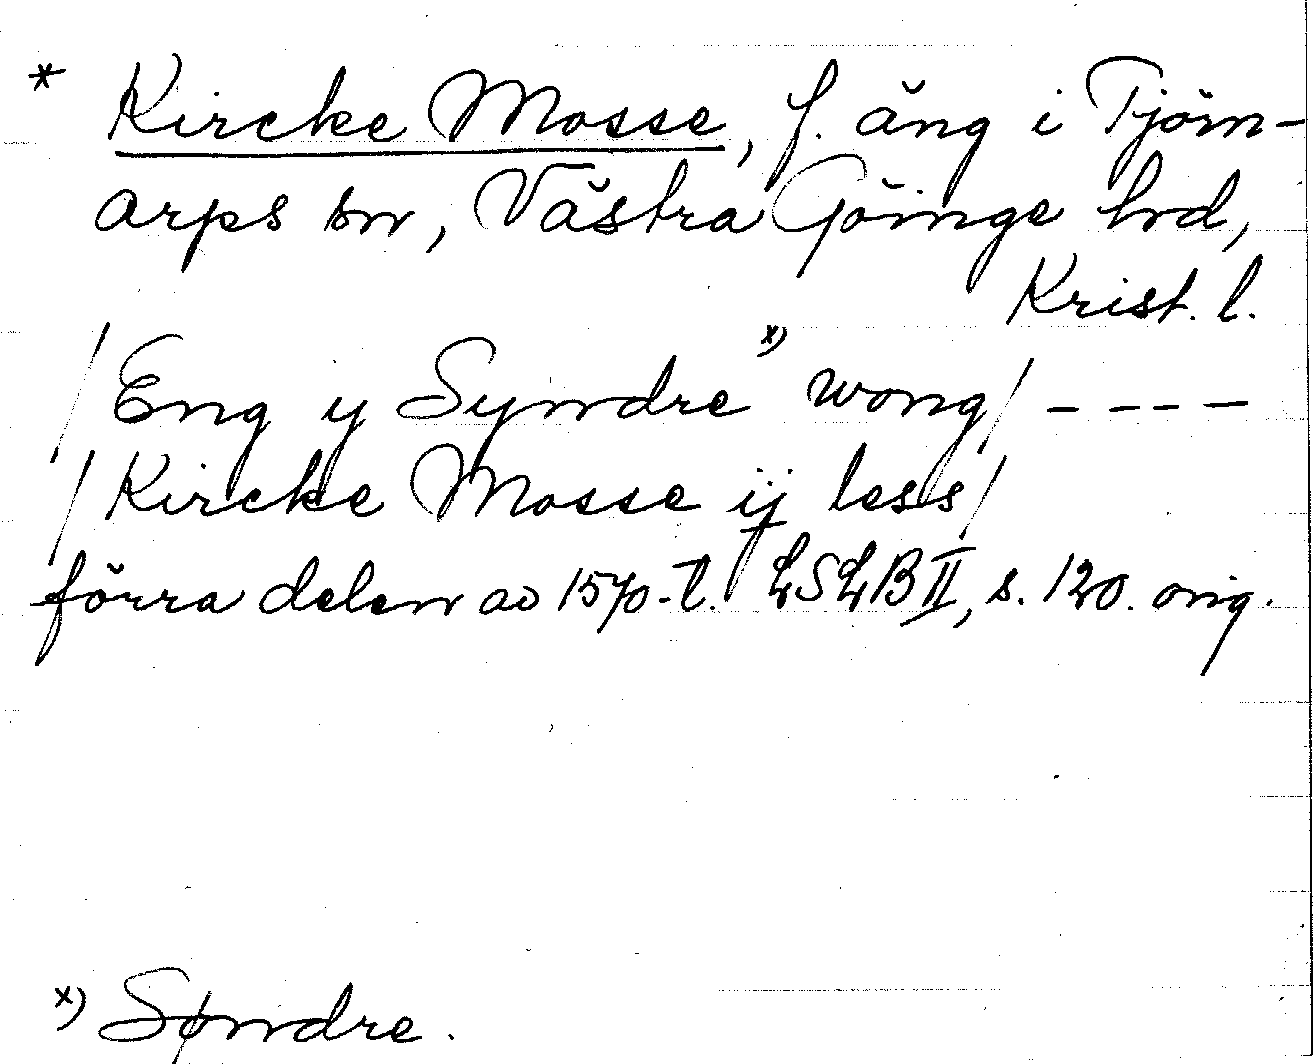 * Kircke Mosse, f. äng i Tjörn-
arps sn, Västra Göinge hrd,
Krist. l.
/Eng y Syndre x) wong/ - - - -
/Kircke Mosse ij less/
förra delen av 1570-t. LSLB II, s. 120. orig.
x) Søndre.